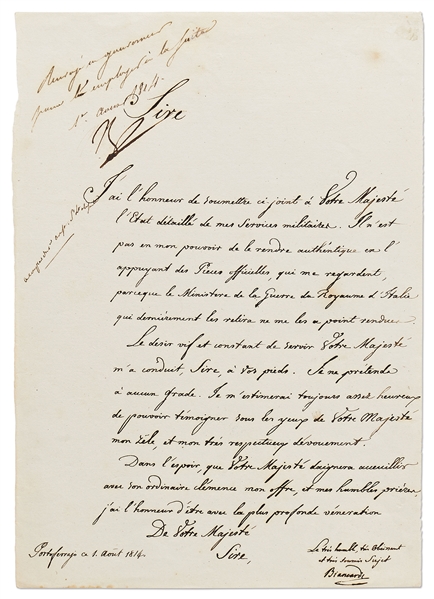 Renvoyé au gouverneur
pour employer à la suite
1er Aout 1814.
Sire
J'ai l'honneur de soumettre ci joint à Vôtre Majesté
l'Etat détaillé de mes Services militaires. Il n'est
pas en mon pouvoir de le rendre authentique en l'
appuyant des Pièces officielles, qui me regardent,
parceque le Ministere de la Guerre du Royaume d'Italie
qui dernièrement les retira ne me les a point rendues.
Le desir vif et constant de servir Vôtre Majesté
m'a conduit, Sire, à Vos pieds. Je ne prétends
à aucun grade. Je m'estimerai toujours assez heureux
de pouvoir témoigner sous les yeux de Vôtre Majesté
mon zèle, et mon très respectueux dévouement.
Dans l'espoir, que Vôtre Majesté daignera accueillir
avec son ordinaire clémence mon offre, et mes humbles prières,
j'ai l'honneur d'être avec la plus profonde vénération
De Vôtre Majesté
Sire,
Portoferrajo ce 1. Août 1814.
Le très humble, très Obéissant
et très soumis Sujet
Biancardi